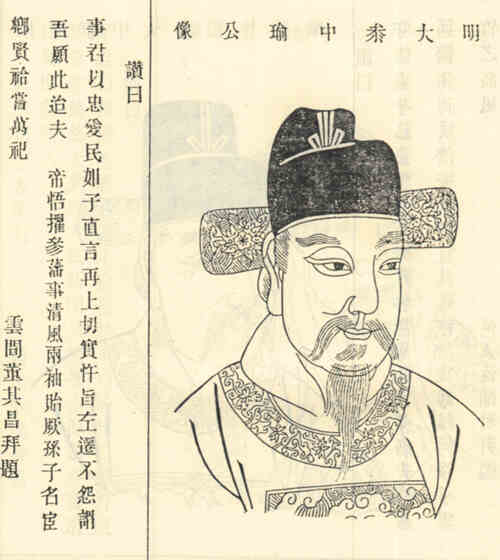 明大叅中瑜公像
讚曰
事君以忠愛民如子直言再上切實忤旨左遷不怨謂
吾願此迨夫　帝悟擢參藩事清風兩袖貽厥孫子名宦
鄉賢祫嘗萬祀
雲間董其昌拜題